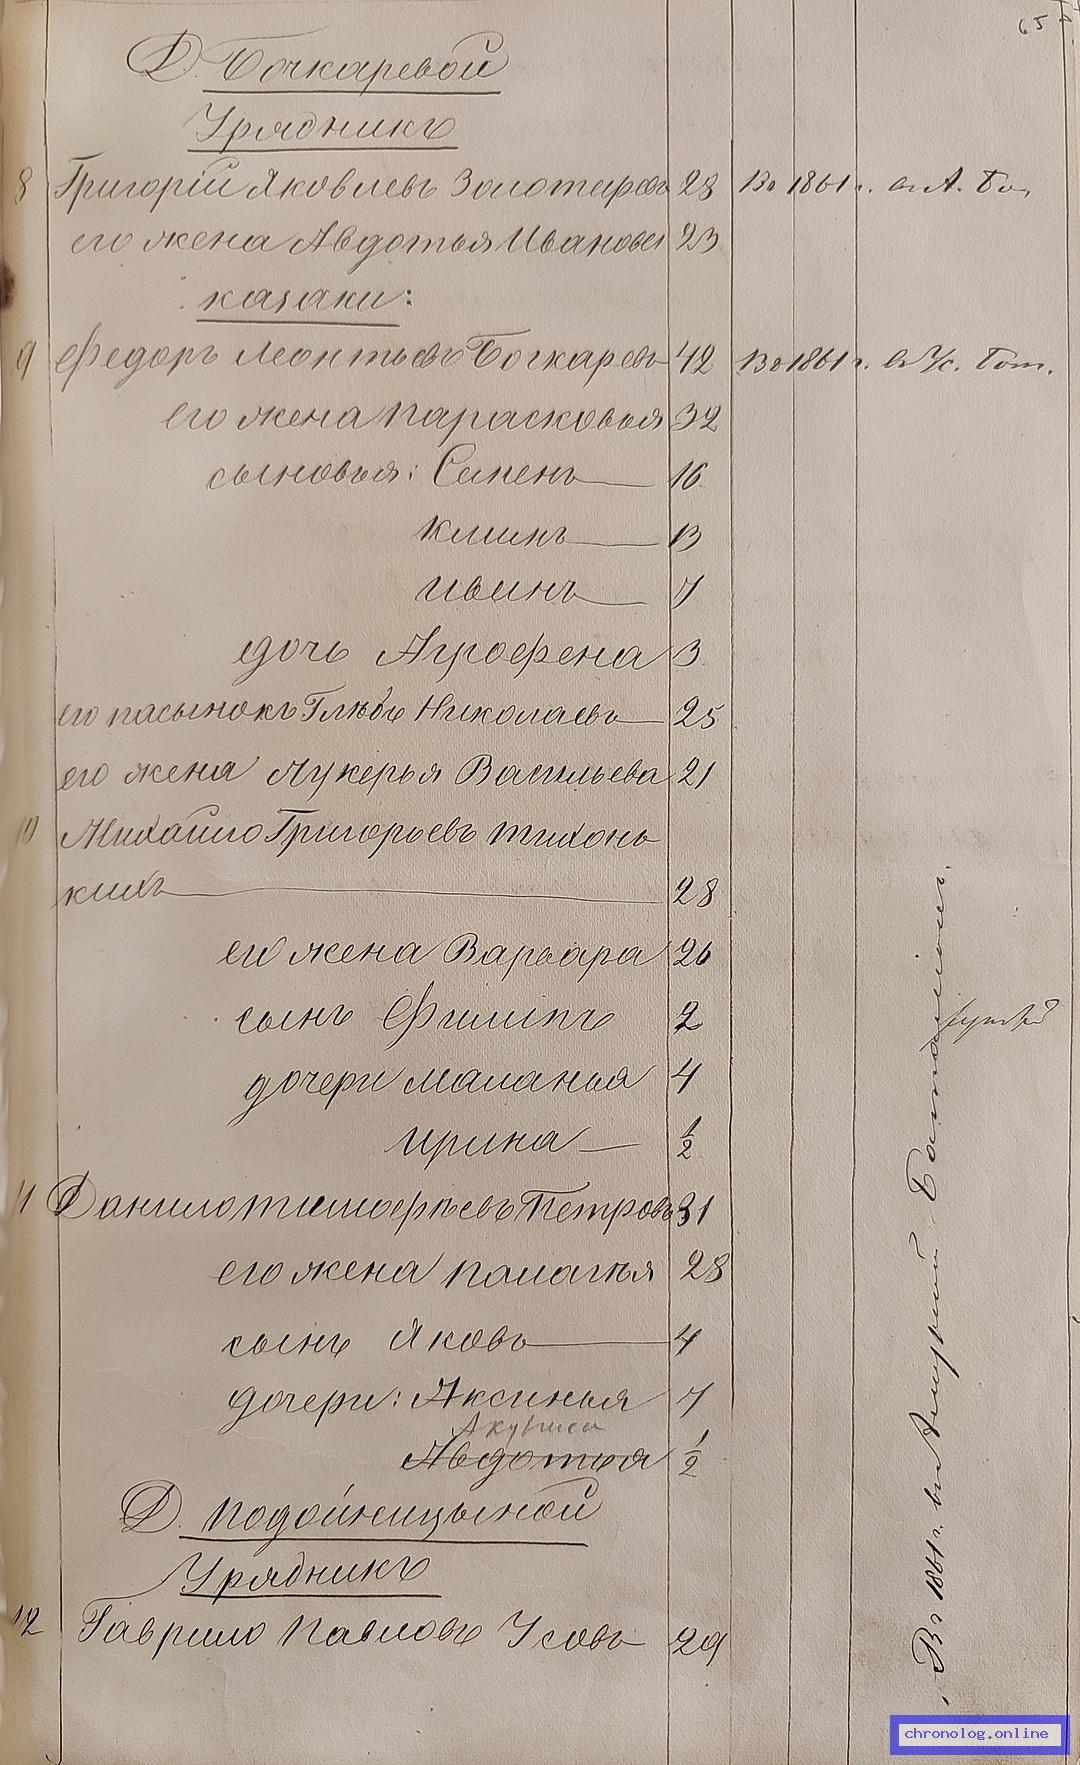 65
Д. Бочкаревой
Урядникъ
8 Григорій Яковлевъ Золотаревъ 28 Во 1861 г. въ А. Ба.
его жена Авдотья Иванова 23
казаки:
9 Федоръ Леонтьевъ Бочкаревъ 42 Во 1861 г. въ Бат.
его жена Парасковья 32
сыновья: Семенъ 16
Климъ 13
Иванъ 7
дочь Агрофена 3
его пасынокъ Глѣбъ Николаевъ 25
его жена Лукерья Васильева 21
10 Михайло Григорьевъ Тихонь
кихъ 28
его жена Варвара 26
сынъ Филипъ 2
дочери Маланья 4
Ирина 1/2
11 Данило Тимофѣевъ Петровъ 31
его жена Палагѣя 28
сынъ Яковъ 4
дочери: Аксинья 7
Акулина
Авдотья 1/2
Д. Подойницыной
Урядникъ
12 Гаврило Павловъ Усовъ 29
Въ 1861 г. въ Амуркий Баталіонъ.
chronolog.online